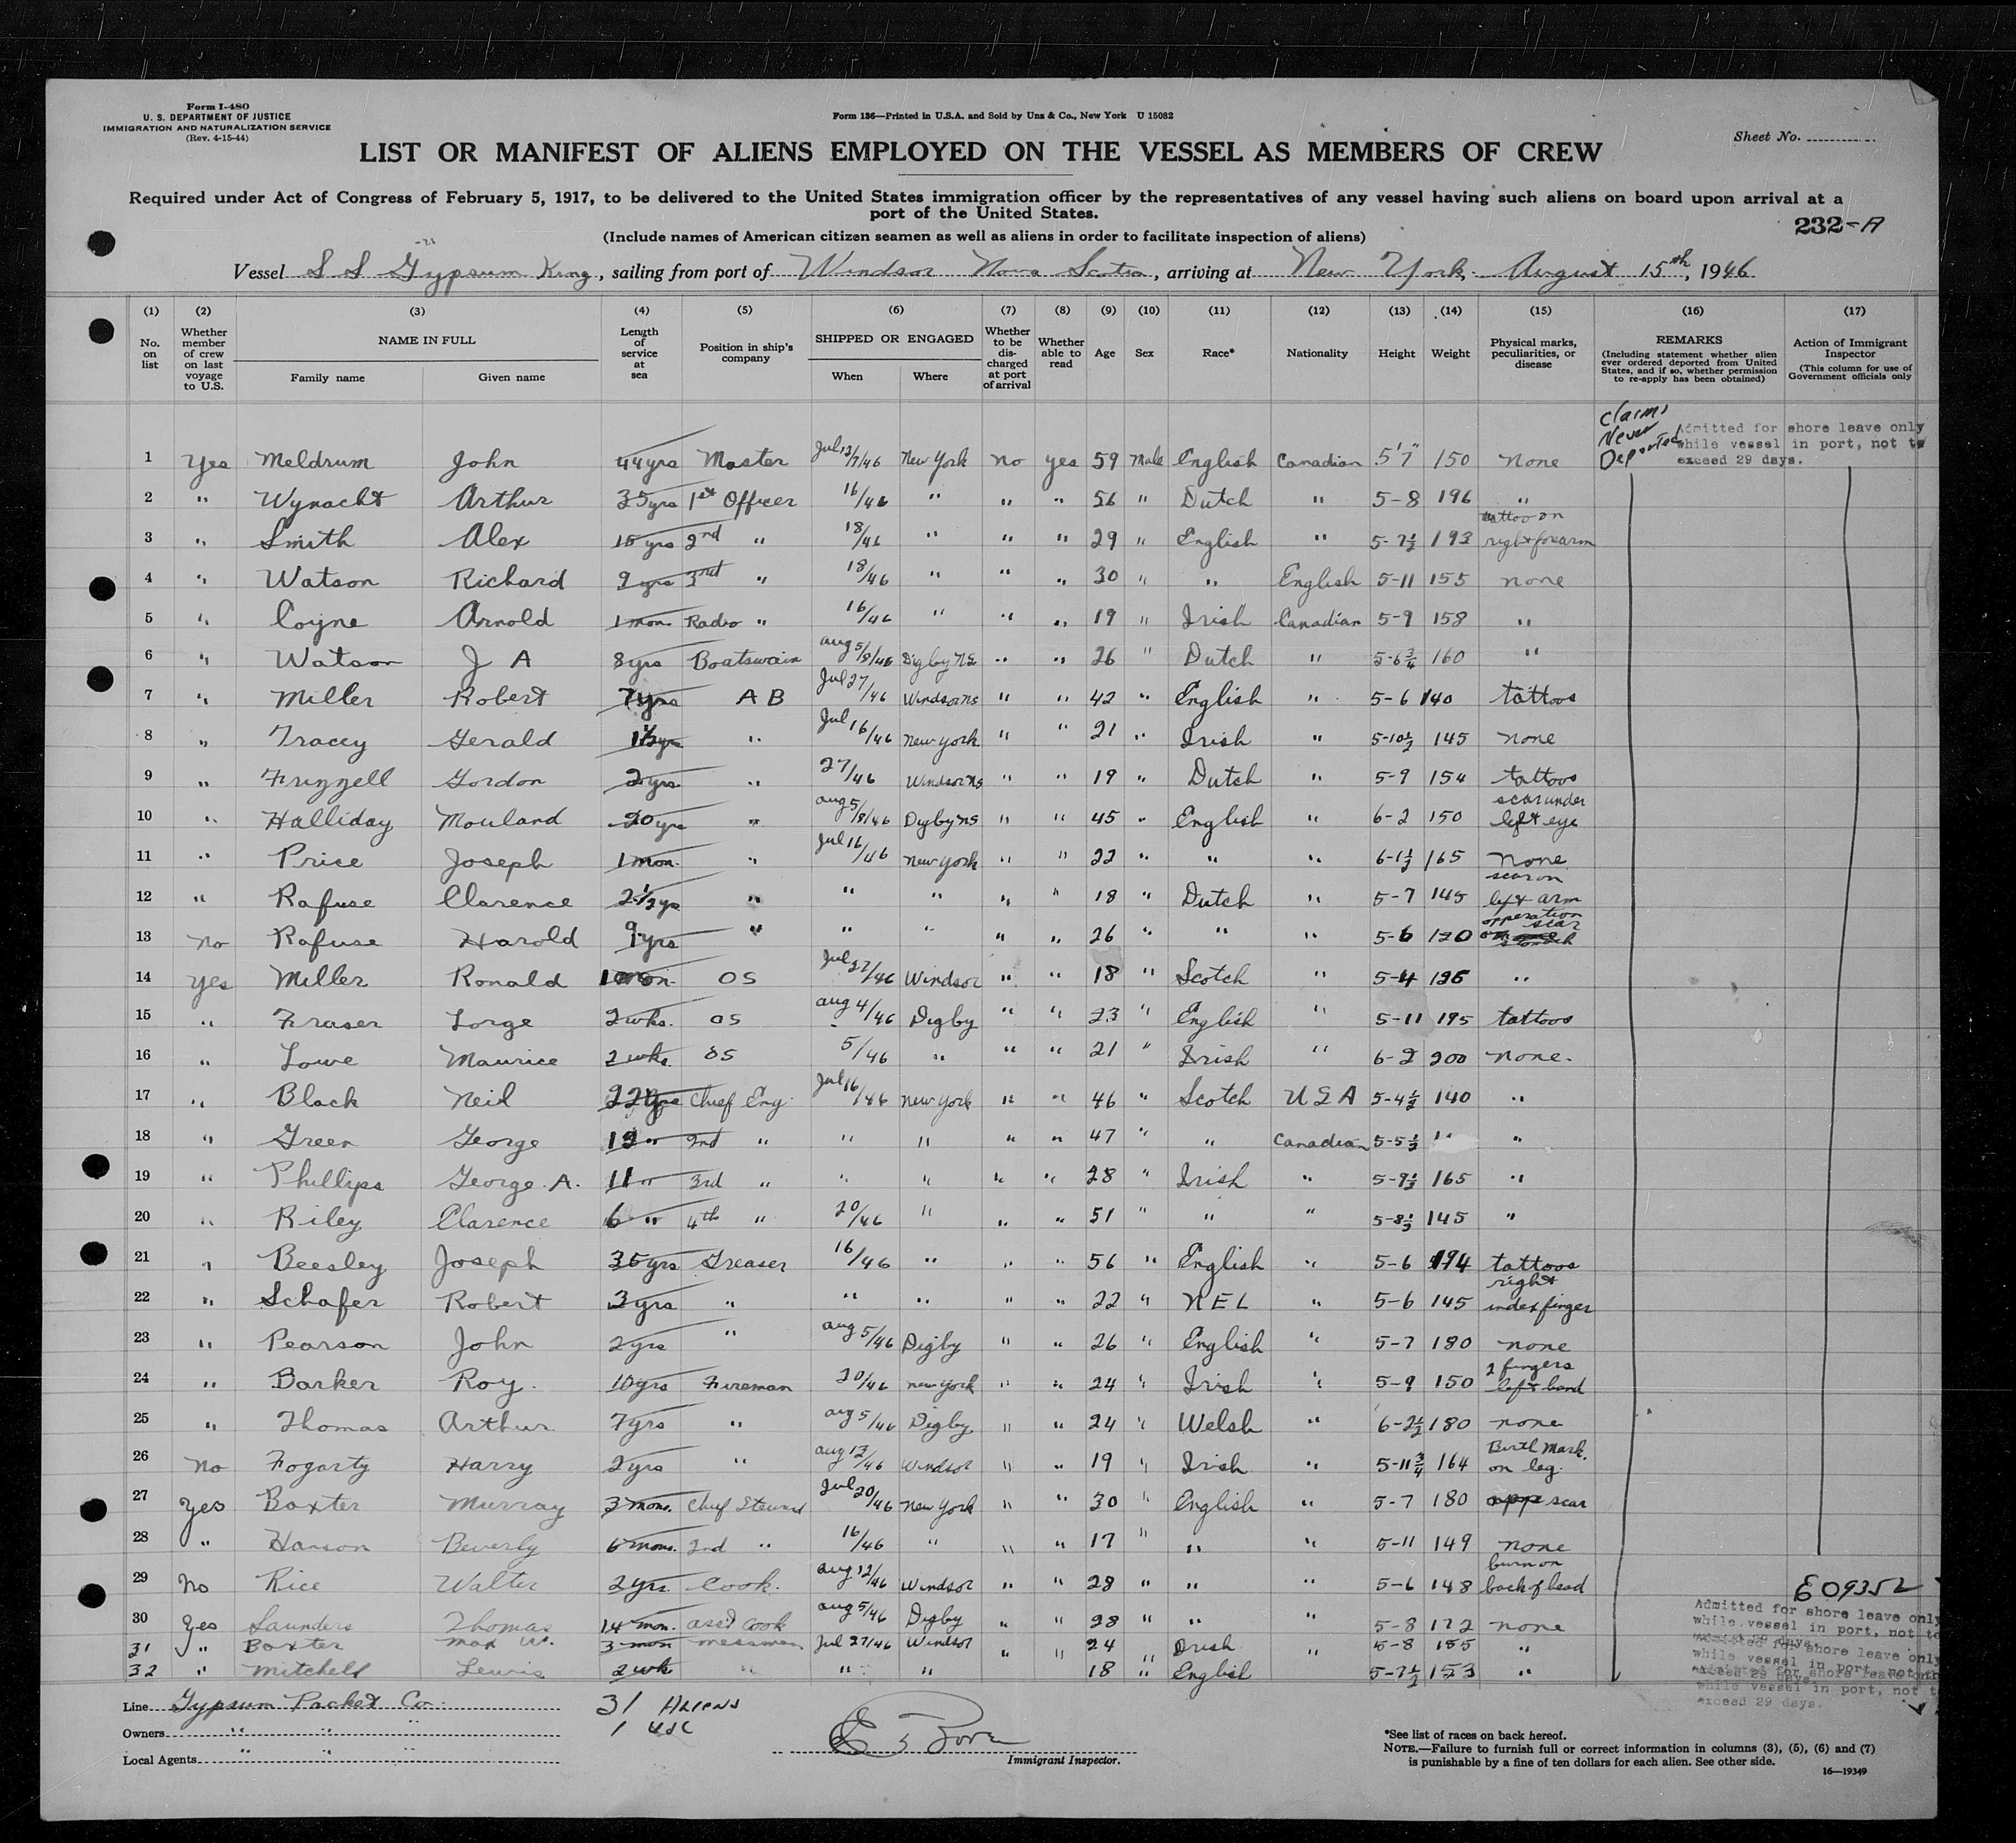 Form I-480
U. S. DEPARTMENT OF JUSTICE
IMMIGRATION AND NATURALIZATION SERVICE
(Rev. 4-15-44)
Form 136—Printed in U.S.A. and Sold by Unz & Co., New York U 15082
Sheet No.
LIST OR MANIFEST OF ALIENS EMPLOYED ON THE VESSEL AS MEMBERS OF CREW
Required under Act of Congress of February 5, 1917, to be delivered to the United States immigration officer by the representatives of any vessel having such aliens on board upon arrival at a
port of the United States.
232-A
(Include names of American citizen seamen as well as aliens in order to facilitate inspection of aliens)
Vessel S S Gypsum King, sailing from port of Windsor Nova Scotia, arriving at New York, August 15th, 1946
(1) (2) (3) (4) (5) (6) (7) (8) (9) (10) (11) (12) (13) (14) (15) (16) (17)
No. on list
Whether member of crew on last voyage to U.S.
NAME IN FULL
Family name Given name
Length of service at sea
Position in ship's company
SHIPPED OR ENGAGED
When Where
Whether to be discharged at port of arrival
Whether able to read
Age
Sex
Race*
Nationality
Height
Weight
Physical marks, peculiarities, or disease
REMARKS
(Including statement whether alien ever ordered deported from United States, and if so, whether permission to re-apply has been obtained)
Action of Immigrant Inspector
(This column for use of Government officials only
Claims Never Deported
Admitted for shore leave only
while vessel in port, not to
exceed 29 days.
1 Yes Meldrum John 44yrs Master Jul 13/7/46 New York no yes 59 Male English Canadian 5'7" 150 None
2 " Wynacht Arthur 35yrs 1st Officer 16/46 " " " 56 " Dutch " 5-8 196 "
3 " Smith Alex 15 yrs 2nd " 18/46 " " " 29 " English " 5-7½ 193 tattoo on right forearm
4 " Watson Richard 9 yrs 3rd " 18/46 " " " 30 " " English 5-11 155 none
5 " Coyne Arnold 1 mon Radio " 16/46 " " " 19 " Irish Canadian 5-9 158 "
6 " Watson J A 8yrs Boatswain Aug 5/8/46 Digby NS " " 26 " Dutch " 5-6¾ 160 "
7 " Miller Robert 7yrs A B Jul 27/46 Windsor NS " " 42 " English " 5-6 140 tattoos
8 " Tracey Gerald 1½yr " Jul 16/46 New York " " 21 " Irish " 5-10½ 145 none
9 " Frizzell Gordon 2yrs " 27/46 Windsor NS " " 19 " Dutch " 5-9 154 tattoos
10 " Halliday Mouland 20yrs " Aug 5/8/46 Digby NS " " 45 " English " 6-2 150 scar under left eye
11 " Price Joseph 1 mon. " Jul 16/46 New York " " 22 " " " 6-1½ 165 none
12 " Rafuse Clarence 2½yrs " " " " " 18 " Dutch " 5-7 145 scar on left arm
13 no Rafuse Harold 9yrs " " " " " 26 " " " 5-6 120 opperation scar
14 Yes Miller Ronald mon. OS Jul 27/46 Windsor " " 18 " Scotch " 5-4 125 "
15 " Fraser Lorge 2wks. OS Aug 4/46 Digby " " 23 " English " 5-11 195 tattoos
16 " Lowe Maurice 2 wks. OS 5/46 " " " 21 " Irish " 6-2 200 none.
17 " Black Neil 22yrs Chief Eng. Jul 16/46 New York " " 46 " Scotch U S A 5-4½ 140 "
18 " Green George " 2nd " " " " " 47 " " Canadian 5-5½ "
19 " Phillips George A. 11 " 3rd " " " " " 28 " Irish " 5-9½ 165 "
20 " Riley Clarence 6 " 4th " 20/46 " " " 51 " " " 5-8½ 145 "
21 " Beesley Joseph 35yrs Greaser 16/46 " " " 56 " English " 5-6 194 tattoos
22 " Schafer Robert 3yrs " " " " " 22 " NEL " 5-6 145 right index finger
23 " Pearson John 2yrs " Aug 5/46 Digby " " 26 " English " 5-7 180 none
24 " Barker Roy. 10yrs Fireman 20/46 New York " " 24 " Irish " 5-9 150 2 fingers left hand
25 " Thomas Arthur 7yrs " Aug 5/46 Digby " " 24 " Welsh " 6-2½ 180 none
26 No Fogarty Harry 2yrs " Aug 13/46 Windsor " " 19 " Irish " 5-11¾ 164 Birth Mark. on leg.
27 Yes Baxter Murray 3 mons. Chief Steward Jul 20/46 New York " " 30 " English " 5-7 180 scar
28 " Hanson Beverly 6 mons. 2nd " 16/46 " " " 17 " " " 5-11 149 none
29 No Rice Walter 2yrs. Cook. Aug 12/46 Windsor " " 28 " " " 5-6 148 burn on back of head
E09352
30 Yes Saunders Thomas 14 mon. Asst Cook Aug 5/46 Digby " " 28 " " " 5-8 172 none
31 " Baxter Max W. 3 mon messman Jul 27/46 Windsor " " 24 " Irish " 5-8 155 "
32 " Mitchell Lewis 2wk " " " 18 " English 5-7½ 153 "
Admitted for shore leave only
while vessel in port, not to
for shore leave only
while vessel in port, not
for shore leave only
while vessel in port, not to
exceed 29 days.
Line Gypsum Packet Co.
Owners " " "
Local Agents " " "
31 Aliens
1 USC
Immigrant Inspector.
*See list of races on back hereof.
NOTE.—Failure to furnish full or correct information in columns (3), (5), (6) and (7)
is punishable by a fine of ten dollars for each alien. See other side.
16—19349